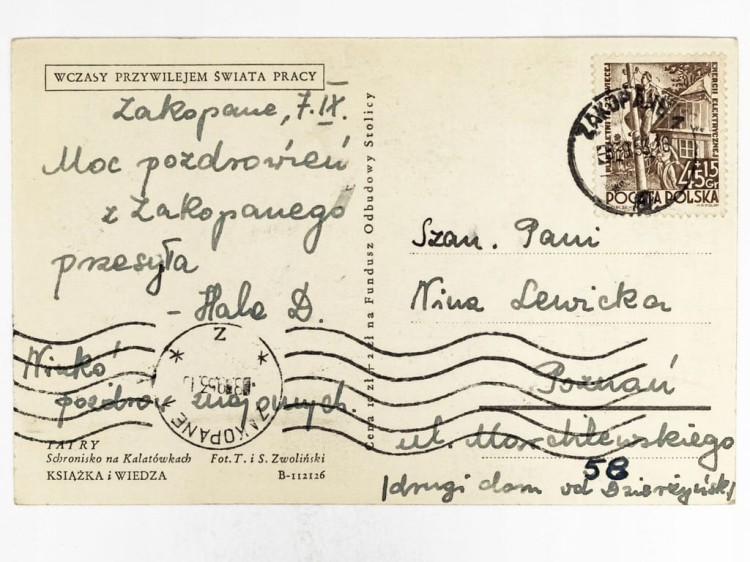 WCZASY PRZYWILEJEM ŚWIATA PRACY
Zakopane, 7.IX.
Moc pozdrowień
z Zakopanego
przesyła
- Hala D.
Ninko!
pozdrów znajomych.
TATRY
Schronisko na Kalatówkach Fot. T. i S. Zwoliński
KSIĄŻKA i WIEDZA B-112126
Cena 10 zł + 2 zł na Fundusz Odbudowy Stolicy
ENERGII ELEKTRYCZNEJ
45+15
Gr
POCZTA POLSKA
ZAKOPANE
Szan. Pani
Nina Lewicka
Poznań
ul. Marchlewskiego
58
/drugi dom od Dzierżyńsk/
ZAKOPANE